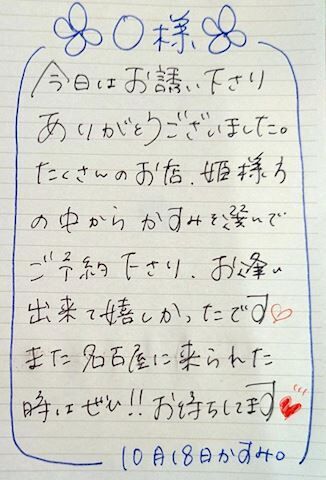 〇様
今日はお誘い下さり
ありがとうございました。
たくさんのお店、姫様方
の中からかすみを選んで
ご予約下さり、お逢い
出来て嬉しかったです♡
また名古屋に来られた
時はぜひ!!お待ちしてます♥
10月18日かすみ。